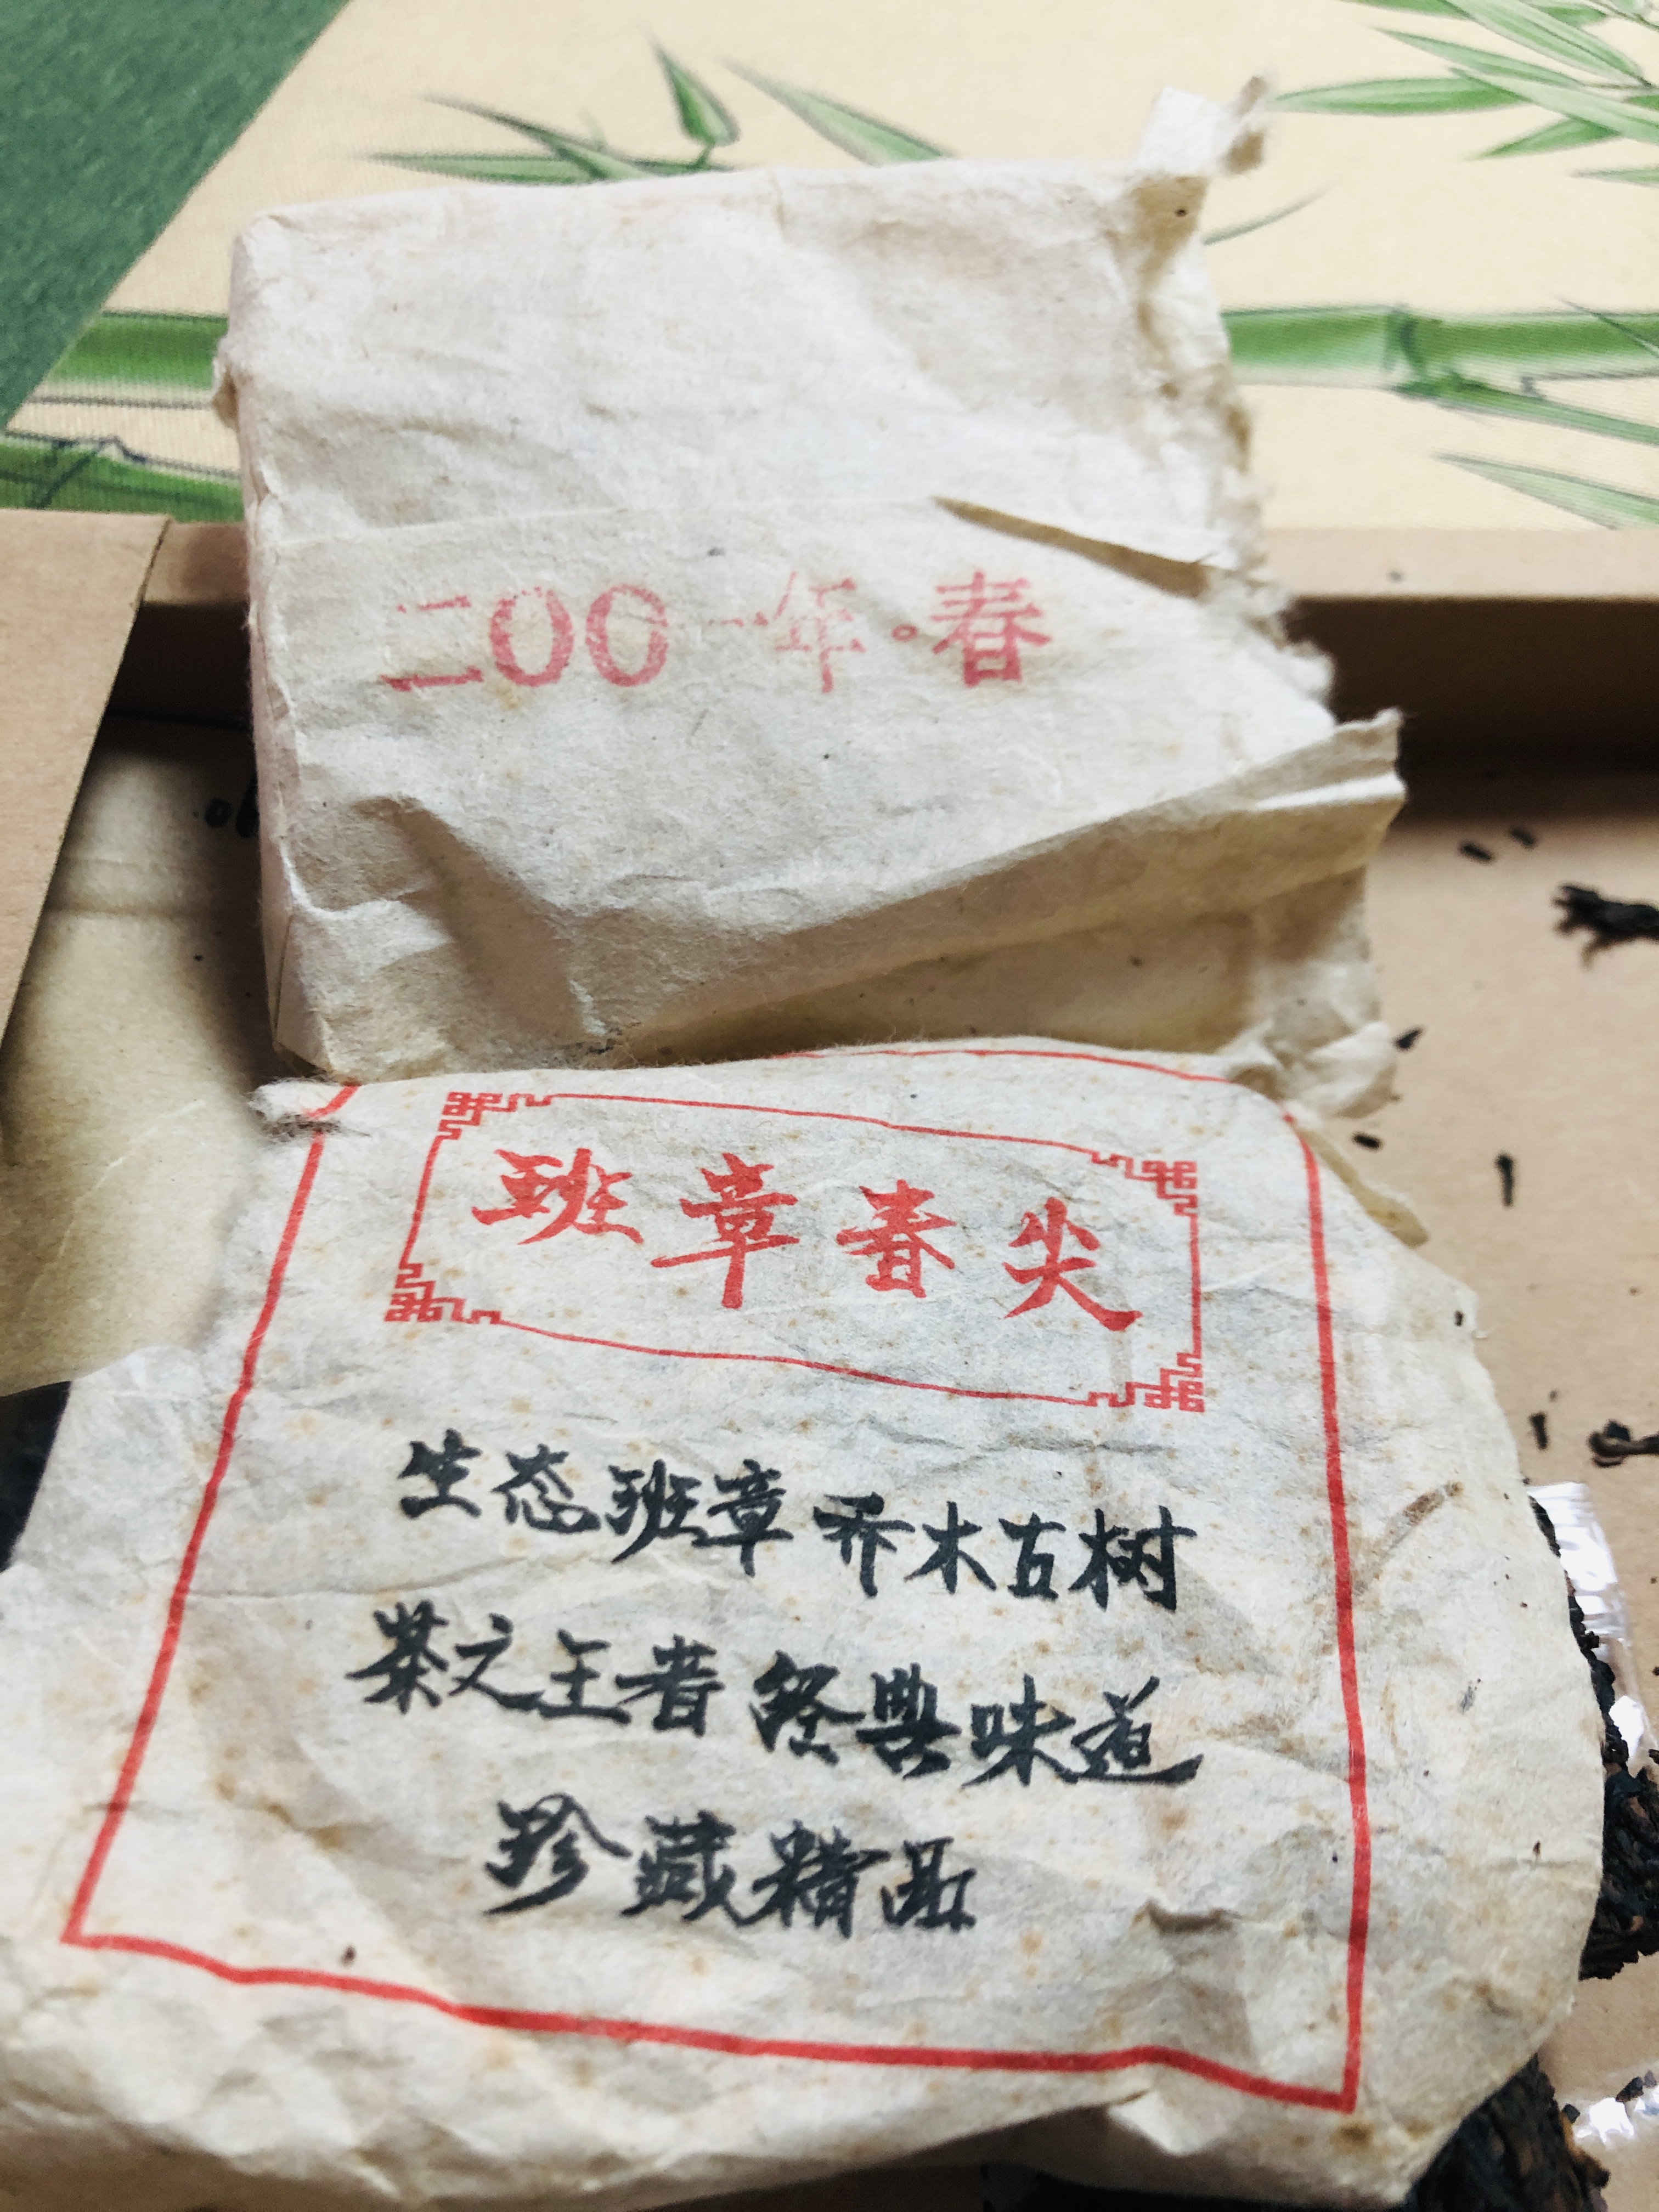 二00一年。春
班章春尖
生态班章 乔木古树
茶之王者 经典味道
珍藏精品